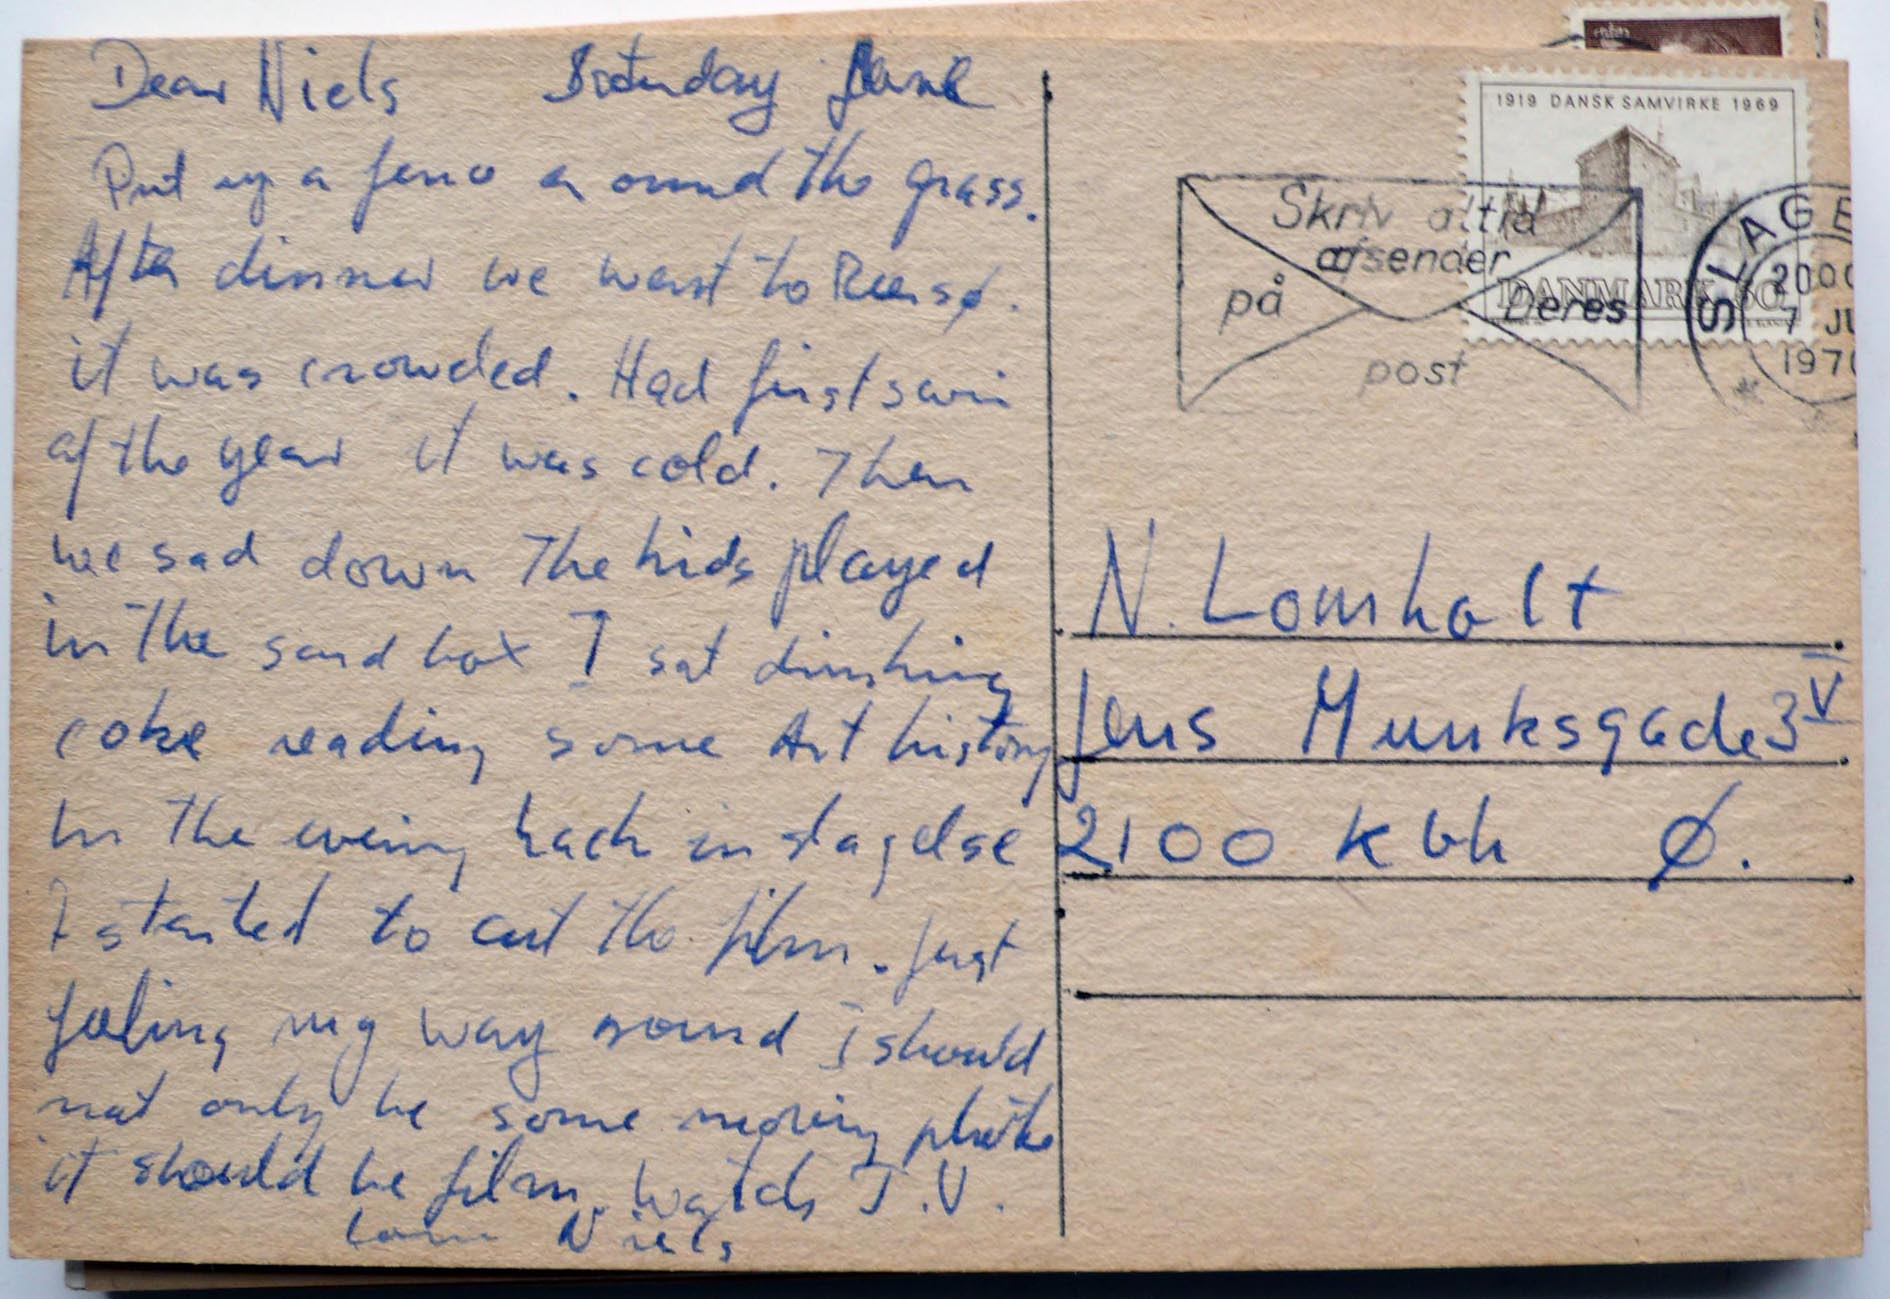 Dear Niels Saturday June
Put up a fence a ound the grass.
After dinner we went to Reersø.
it was crowded. Had first swim
of the year it was cold. Then
we sad down the kids played
in the sand box I sat drinking
coke reading some Art history
In the evening back in slagelse
I started to cut the film. Just
feeling my way round I should
not only be some moving
it should be film. Watch T.V.
Niels
1919 DANSK SAMVIRKE 1969
DANMARK 60
Skriv altid
afsender
på Deres
post
SLAGE
2000
7 JU
1970
N. Lomholt
Jens Munksgade 3 V
2100 Kbh Ø.